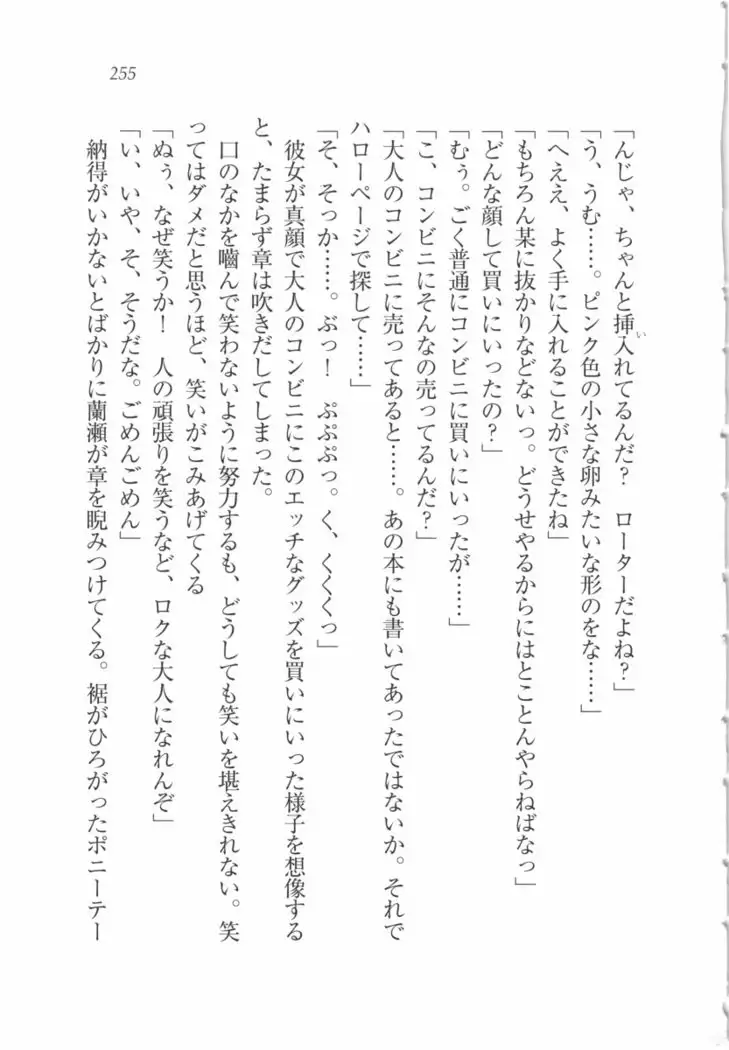 255
「んじゃ、ちゃんと挿入れてるんだ？　ローターだよね？」
い
「う、うむ……。ピンク色の小さな卵みたいな形のをな……」
「へええ、よく手に入れることができたね」
「もちろん某に抜かりなどないっ。どうせやるからにはとことんやらねばなっ」
「どんな顔して買いにいったの？」
「むぅ。ごく普通にコンビニに買いにいったが……」
「こ、コンビニにそんなの売ってるんだ？」
「大人のコンビニに売ってあると……。あの本にも書いてあったではないか。それで
ハローページで探して……」
「そ、そっか……。ぶっ！　ぷぷぷっ。く、くくくっ」
彼女が真顔で大人のコンビニにこのエッチなグッズを買いにいった様子を想像する
と、たまらず章は吹きだしてしまった。
口のなかを嚙んで笑わないように努力するも、どうしても笑いを堪えきれない。笑
ってはダメだと思うほど、笑いがこみあげてくる
「ぬぅ、なぜ笑うか！　人の頑張りを笑うなど、ロクな大人になれんぞ」
「い、いや、そ、そうだな。ごめんごめん」
納得がいかないとばかりに蘭瀬が章を睨みつけてくる。裾がひろがったポニーテー